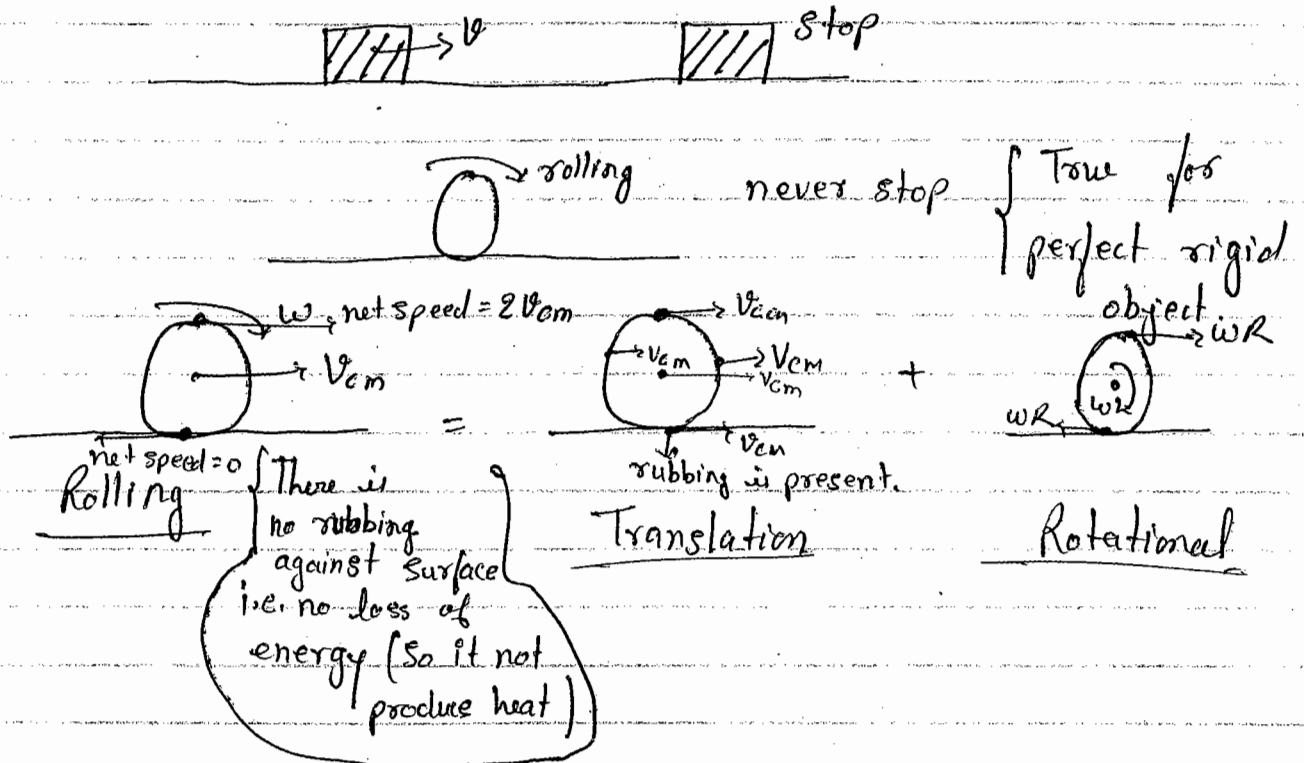 v
Stop
rolling
never stop { True for
perfect rigid
object.
ω, net speed = 2Vcm
Vcm
net speed = 0
Rolling
{ There is
no rubbing
against surface
i.e. no loss of
energy (so it not
produce heat)
=
Vcm
Vcm
Vcm
Vcm
Vcm
rubbing is present.
Translation
+
ωR
ωR
ωR
Rotational